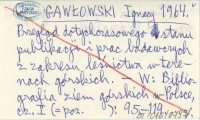 GAWŁOWSKI Ignacy 1964.
Przegląd dotychczasowego stanu
publikacji i prac badawczych
z zakresu leśnictwa w tere-
nach górskich. — W: Biblio-
grafia ziem górskich w Polsce,
cz. I (= poz. ): 95–119.